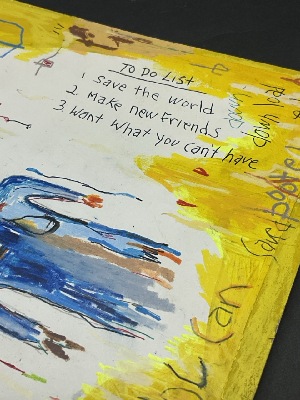 TO DO LIST
1 Save the world
2. Make new Friends
3. Want what You can't have
down
down load
Can